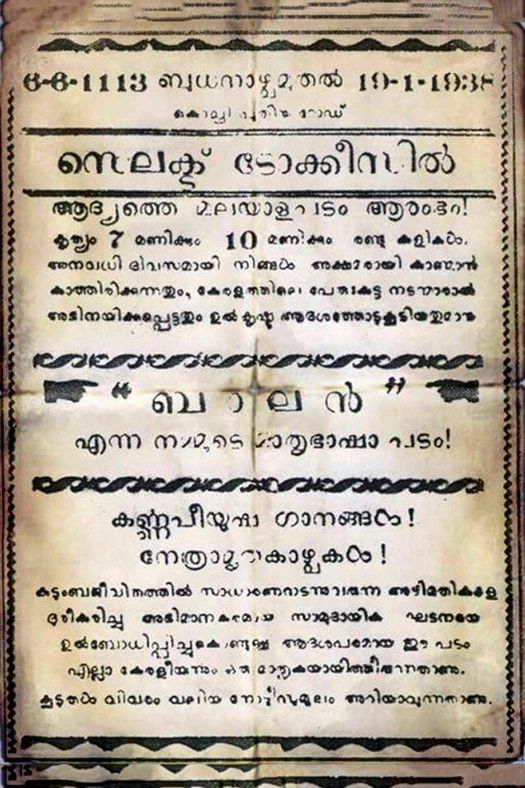 6-6-1113 ബുധനാഴ്ചമുതൽ 19-1-1938
കൊച്ചി പുതിയ റോഡ്
സെലക്ട് ടോക്കീസിൽ
ആദ്യത്തെ മലയാളപടം ആരംഭം!
കൃത്യം 7 മണിക്കും 10 മണിക്കും രണ്ടു കളികൾ.
അനവധി ദിവസമായി നിങ്ങൾ അക്ഷമരായി കാണ്മാൻ
കാത്തിരിക്കുന്നതും, കേരളത്തിലെ പേരുകേട്ട നടന്മാരാൽ
അഭിനയിക്കപ്പെട്ടതും ഉൽകൃഷ്ട ആദർശത്തോടുകൂടിയതുമായ
“ബാലൻ”
എന്ന നമ്മുടെ മാതൃഭാഷാ പടം!
കർണ്ണപീയൂഷ ഗാനങ്ങൾ!
നേത്രാമൃതകാഴ്ചകൾ!
കുടുംബജീവിതത്തിൽ സാധാരണവന്നുവരുന്ന അഴിമതികളെ
ദൂരീകരിച്ചു അഭിമാനകരമായ സാമുദായിക ഘടനയെ
ഉൽബോധിപ്പിച്ചുകൊണ്ടുള്ള ആദർശപരമായ ഈ പടം
എല്ലാ കേരളീയന്നും ഒരു മാതൃകയായിത്തീരുന്നതാണു.
കൂടുതൽ വിവരം വലിയ നോട്ടീസുമൂലം അറിയാവുന്നതാണു.